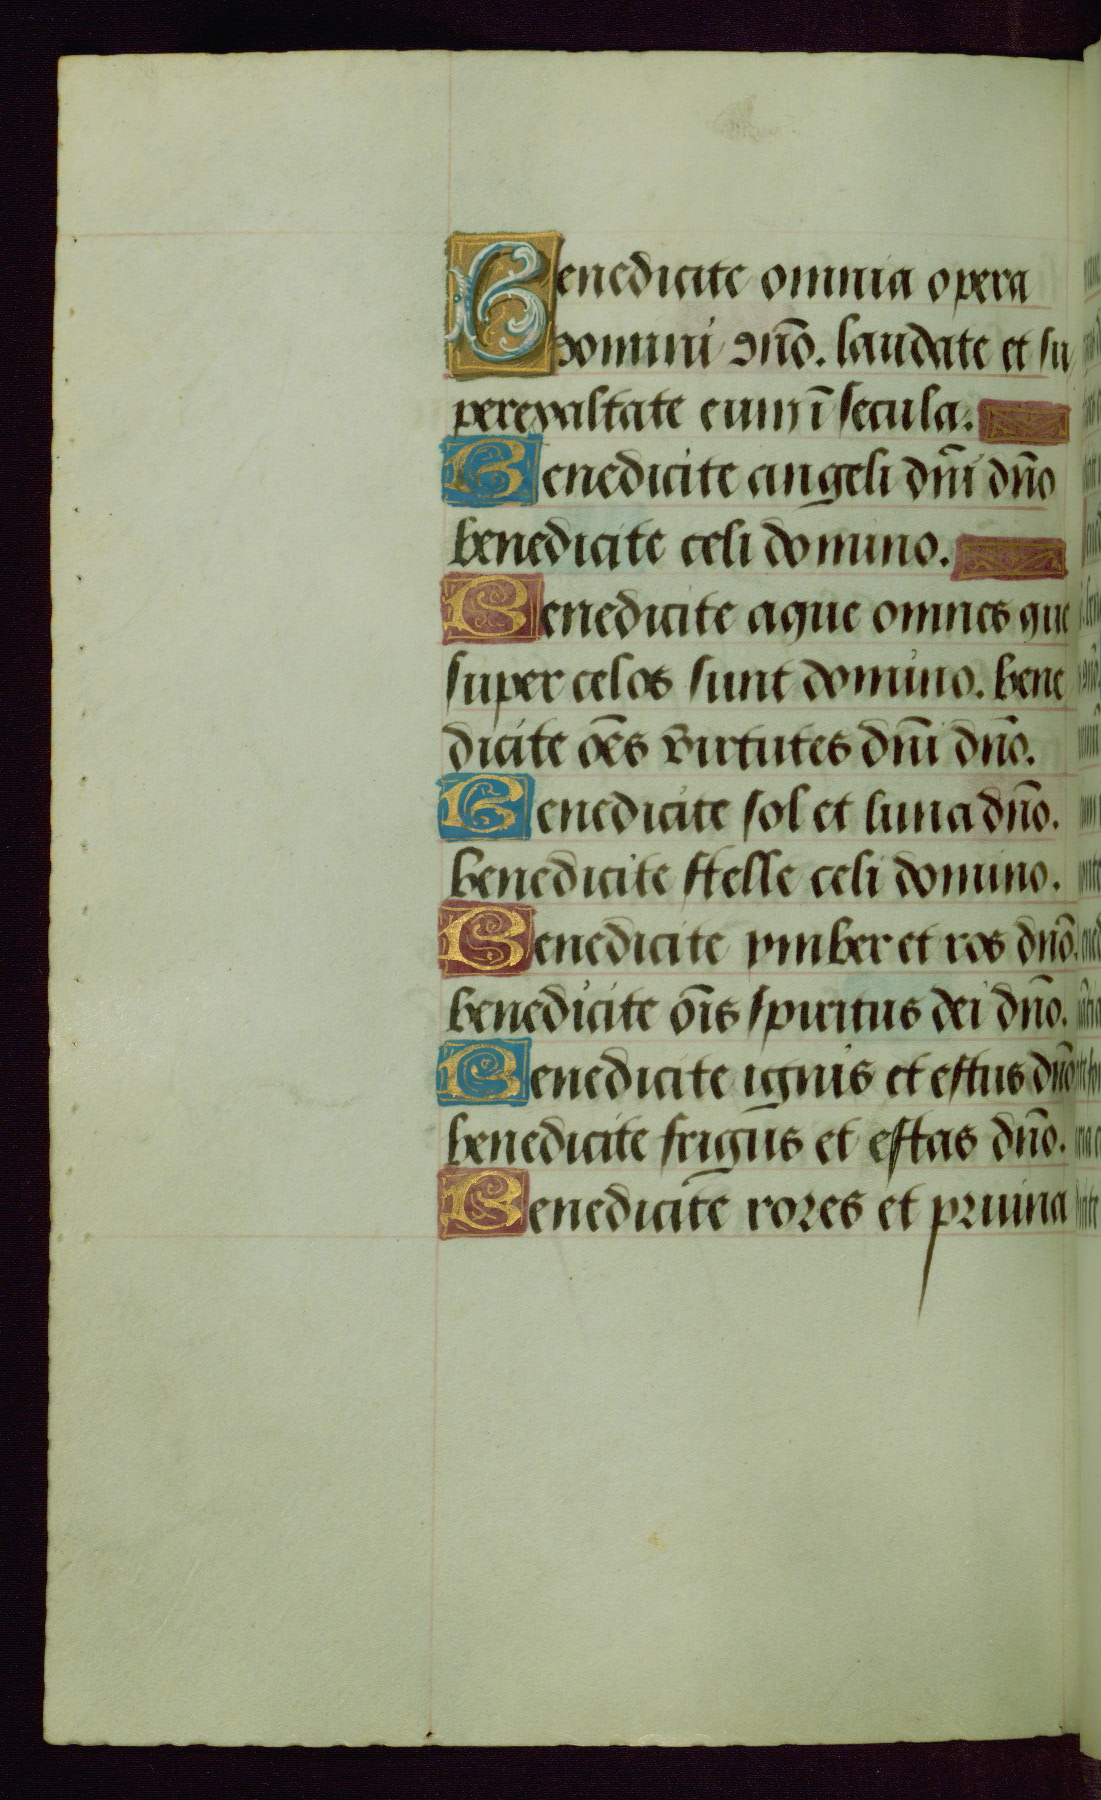 Benedicite omnia opera
domini dño. laudate et su
perexaltate eum ĩ secula.
Benedicite angeli dñi dño
benedicite celi domino.
Benedicite aque omnes que
super celos sunt domino. bene
dicite oẽs virtutes dñi dño.
Benedicite sol et luna dño.
benedicite stelle celi domino.
Benedicite ymber et ros dño.
benedicite oĩs spiritus dei dño.
Benedicite ignis et estus dño
benedicite frigus et estas dño.
Benedicite rores et pruina